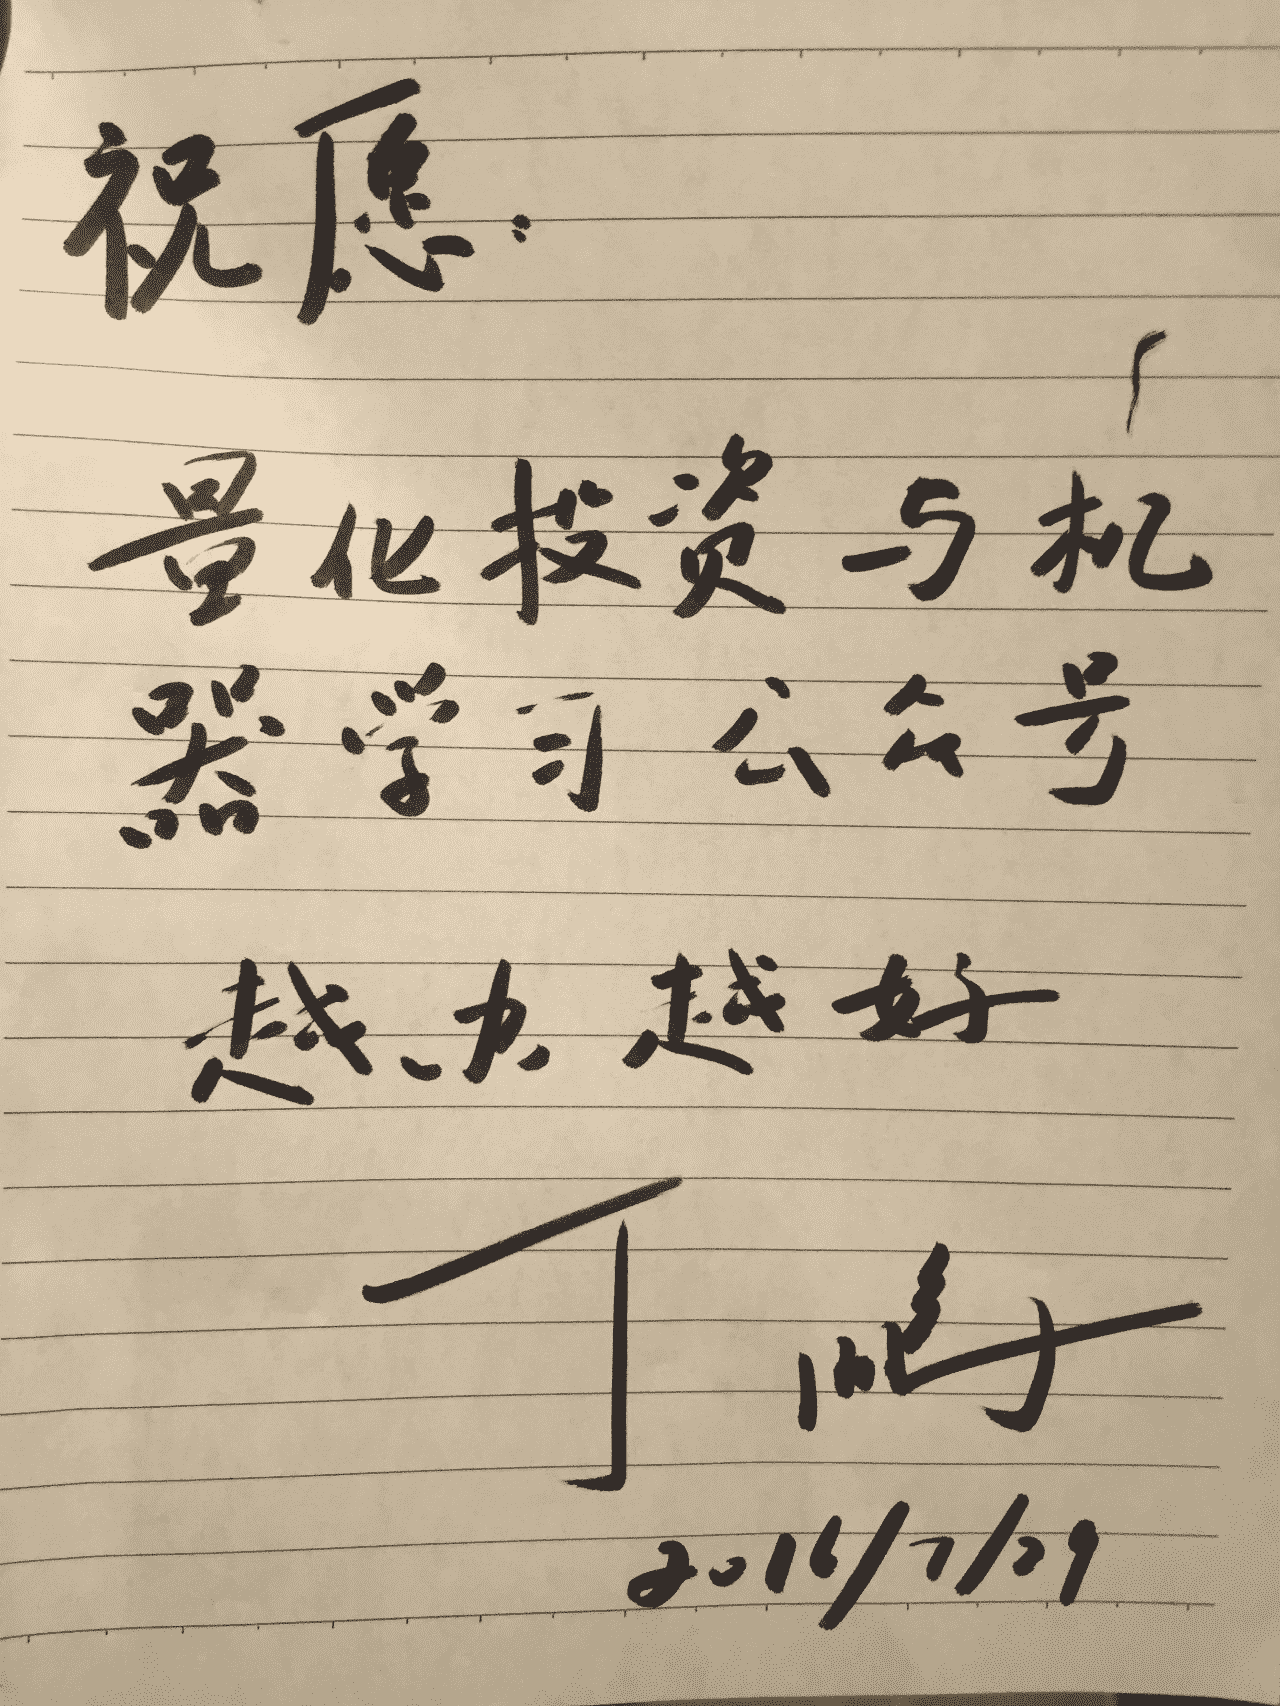 祝愿:
量化投资与机
器学习公众号
越办越好
丁鹏
2016/7/29